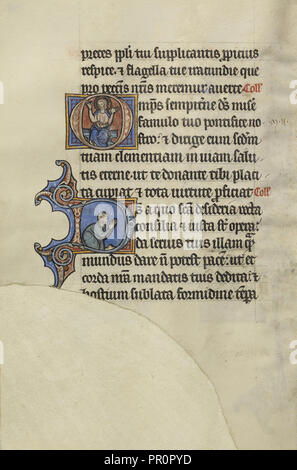 preces ppli tui supplicantis ppicius
respice. & flagella tue iracundie que
pro peccatis nris meremur auerte. Coll
mps sempitne ds mise
famulo tuo pontifice no
stro. & dirige eum sedm
tuam clementiam in uiam salu
tis eterne. ut te donante tibi placi
ta cupiat. & tota uirtute pficiat Coll
s a quo sca desideria recta
consilia & iusta st opera.
da seruis tuis illam qm
mundus dare non potest pacem. ut et
corda nra mandatis tuis dedita. &
hostium sublata formidine tpra
alamy
PR0PYD